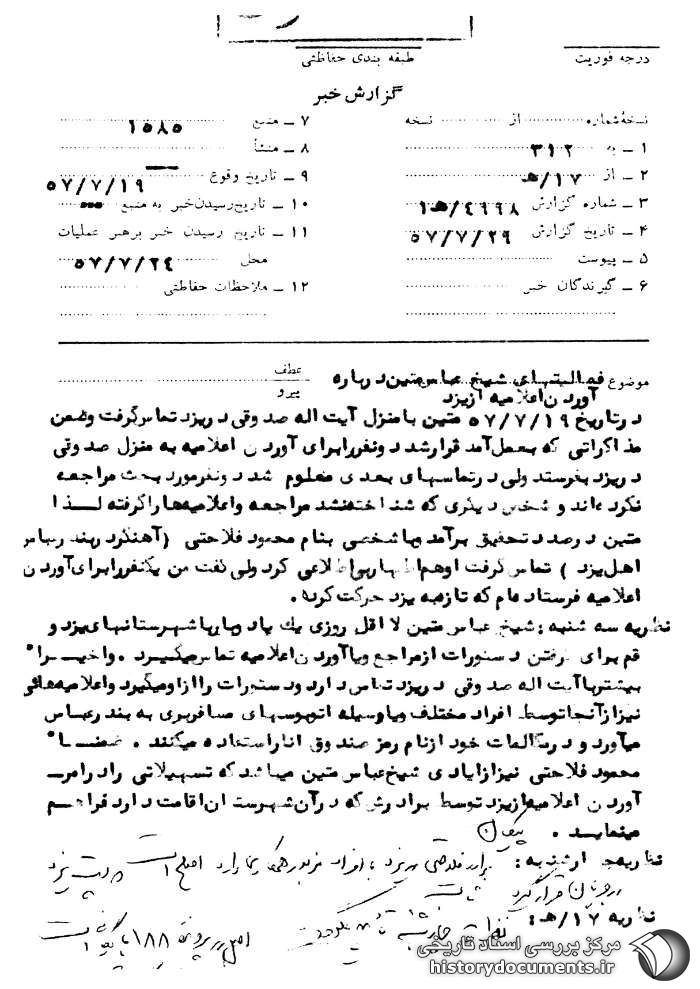 درجه فوریت
طبقه بندی حفاظتی
گزارش خبر
نسخه شماره از نسخه
۱ ـ به ۳۱۲
۲ ـ از ۱۷/هـ
۳ ـ شماره گزارش ۴۹۹۸/هـ۱
۴ ـ تاریخ گزارش ۵۷/۷/۲۹
۵ ـ پیوست
۶ ـ گیرندگان خبر
۷ ـ منبع ۱۵۸۵
۸ ـ منشأ
۹ ـ تاریخ وقوع ۵۷/۷/۱۹
۱۰ ـ تاریخ رسیدن خبر به منبع
۱۱ ـ تاریخ رسیدن خبر برهبر عملیات
محل ۵۷/۷/۲۴
۱۲ ـ ملاحظات حفاظتی
عطف
پیرو
موضوع فعالیتهای شیخ عباس متین درباره
آوردن اعلامیه از یزد
در تاریخ ۵۷/۷/۱۹ متین با منزل آیت اله صدوقی در یزد تماس گرفت و ضمن
مذاکراتی که بعمل آمد قرار شد دو نفر را برای آوردن اعلامیه به منزل صدوقی
در یزد بفرستد ولی در تماسهای بعدی معلوم شد دو نفر مورد بحث مراجعه
نکرده اند و شخص دیگری که شناخته نشد مراجعه و اعلامیه ها را گرفته لذا
متین درصدد تحقیق برآمد و با شخصی بنام محمود فلاحتی (آهنگر بندرعباس
اهل یزد) تماس گرفت او هم اظهار بی اطلاعی کرد ولی گفت من یکنفر را برای آوردن
اعلامیه فرستاده ام که تازه به یزد حرکت کرده.
نظریه سه شنبه: شیخ عباس متین لااقل روزی یک یا دو بار با شهرستانهای یزد و
قم برای گرفتن دستورات از مراجع و یا آوردن اعلامیه تماس میگیرد. و اخیراً
بیشتر با آیت اله صدوقی در یزد تماس دارد و دستورات را از او میگیرد و اعلامیه هائی
نیز از آنجا توسط افراد مختلف و یا وسیله اتوبوسهای مسافربری به بندرعباس
میآورد و در مکالمات خود از نام رمز صندوق انار استفاده میکنند. ضمناً
محمود فلاحتی نیز از ایادی شیخ عباس متین میباشد که تسهیلاتی را در امر
آوردن اعلامیه از یزد توسط برادرش که در آن شهرستان اقامت دارد فراهم
مینماید. پیمان
نظریه چهارشنبه: برادر فلاحتی در یزد با افراد مزبور همکاری دارد اصلح است
در جریان قرار گیرد
نظریه ۱۷/هـ: نظریه چهارشنبه تأیید میگردد
اصل در پرونده ۱۸۸ بایگانی است
مرکز بررسی اسناد تاریخی
historydocuments.ir